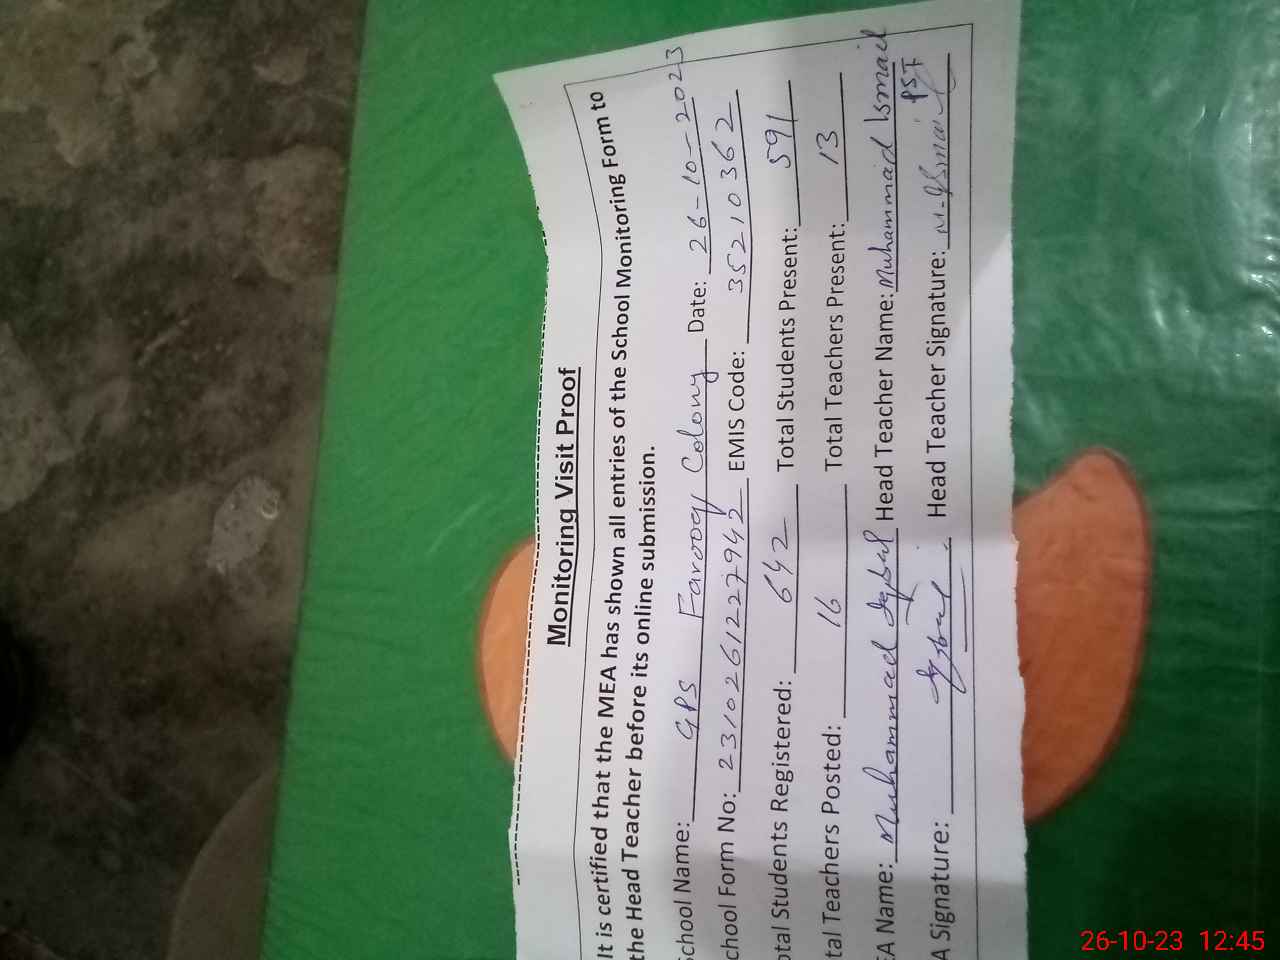 Monitoring Visit Proof
It is certified that the MEA has shown all entries of the School Monitoring Form to
the Head Teacher before its online submission.
School Name: GPS Farooq Colony Date: 26-10-2023
chool Form No: 2310261227942 EMIS Code: 35210362
otal Students Registered: 642 Total Students Present: 591
tal Teachers Posted: 16 Total Teachers Present: 13
EA Name: Muhammad Iqbal Head Teacher Name: Muhammad Ismail
PST
A Signature: Iqbal Head Teacher Signature: M-Ismail
26-10-23 12:45